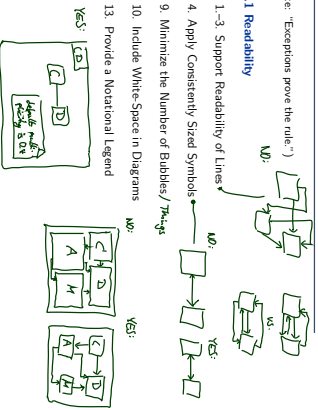 e: "Exceptions prove the rule." )
.1 Readability
1.–3. Support Readability of Lines
4. Apply Consistently Sized Symbols
9. Minimize the Number of Bubbles / Things
10. Include White-Space in Diagrams
13. Provide a Notational Legend
NO:
vs.
NO:
YES:
NO:
C
D
A
M
YES:
C
D
A
M
YES:
CD
C
D
default multi-
plicity is 0..*